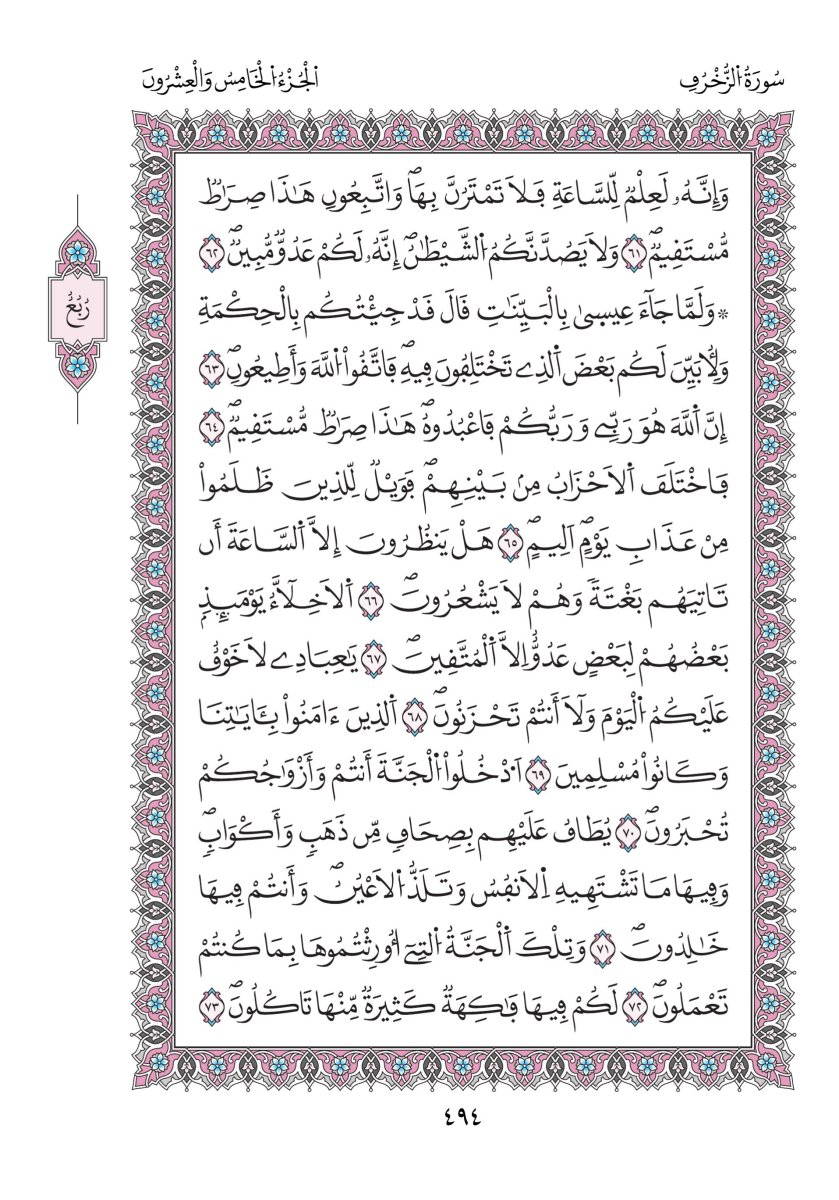 سُورَةُ اُ۬لزُّخْرُفِ
اُ۬لْجُزْءُ اُ۬لْخَامِسُ وَالْعِشْرُونَ
وَإِنَّهُۥ لَعِلْمٞ لِّلسَّاعَةِ فَلَا تَمْتَرُنَّ بِهَاۖ وَاتَّبِعُونِ هَٰذَا صِرَٰطٞ
مُّسْتَقِيمٞۖ ٦١ وَلَا يَصُدَّنَّكُمُ اُ۬لشَّيْطَٰنُۖ إِنَّهُۥ لَكُمْ عَدُوّٞ مُّبِينٞۖ ٦٢
۞ وَلَمَّا جَآءَ عِيسۭيٰ بِالْبَيِّنَٰتِ قَالَ قَدْ جِئْتُكُم بِالْحِكْمَةِ
وَلِأُبَيِّنَ لَكُم بَعْضَ اَ۬لذِے تَخْتَلِفُونَ فِيهِۖ فَاتَّقُواْ اُ۬للَّهَ وَأَطِيعُونِۖ ٦٣
إِنَّ اَ۬للَّهَ هُوَ رَبِّے وَرَبُّكُمْ فَاعْبُدُوهُۖ هَٰذَا صِرَٰطٞ مُّسْتَقِيمٞۖ ٦٤
فَاخْتَلَفَ اَ۬لَاحْزَابُ مِنۢ بَيْنِهِمْۖ فَوَيْلٞ لِّلذِينَ ظَلَمُواْ
مِنْ عَذَابِ يَوْمٍ اَلِيمٍۖ ٦٥ هَلْ يَنظُرُونَ إِلَّا اَ۬لسَّاعَةَ أَن
تَاتِيَهُم بَغْتَةٗ وَهُمْ لَا يَشْعُرُونَۖ ٦٦ اَ۬لَاخِلَّآءُ يَوْمَئِذِۢ
بَعْضُهُمْ لِبَعْضٍ عَدُوٌّ اِلَّا اَ۬لْمُتَّقِينَۖ ٦٧ يَٰعِبَادِے لَا خَوْفٌ
عَلَيْكُمُ اُ۬لْيَوْمَ وَلَآ أَنتُمْ تَحْزَنُونَۖ ٦٨ اَ۬لذِينَ ءَامَنُواْ بِـَٔايَٰتِنَا
وَكَانُواْ مُسْلِمِينَ ٦٩ اَ۟دْخُلُواْ اُ۬لْجَنَّةَ أَنتُمْ وَأَزْوَٰجُكُمْ
تُحْبَرُونَۖ ٧٠ يُطَافُ عَلَيْهِم بِصِحَافٖ مِّن ذَهَبٖ وَأَكْوَابٖۖ
وَفِيهَا مَا تَشْتَهِيهِ اِ۬لَانفُسُ وَتَلَذُّ اُ۬لَاعْيُنُۖ وَأَنتُمْ فِيهَا
خَٰلِدُونَۖ ٧١ وَتِلْكَ اَ۬لْجَنَّةُ اُ۬لتِےٓ أُورِثْتُمُوهَا بِمَا كُنتُمْ
تَعْمَلُونَۖ ٧٢ لَكُمْ فِيهَا فَٰكِهَةٞ كَثِيرَةٞ مِّنْهَا تَاكُلُونَۖ ٧٣
رُبُعُ
٤٩٤